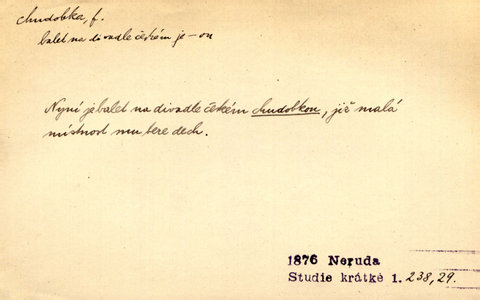 chudobka, f.
balet na divadle českém je – ou
Nyní je balet na divadle českém chudobkou, jíž malá
místnost mu bere dech.
1876 Neruda
Studie krátké 1. 238,29.